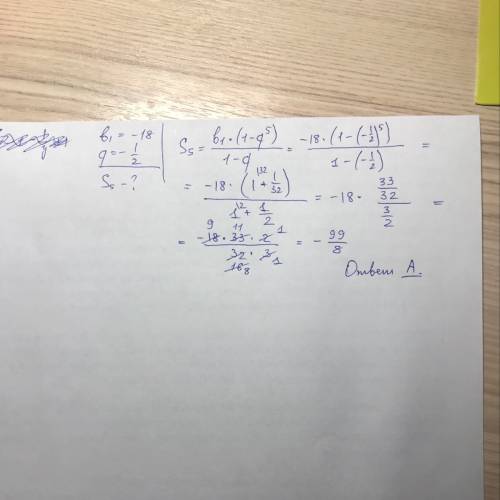 b₁ = -18
q = -1/2
S₅ - ?
S₅ = b₁·(1-q⁵)/(1-q) = -18·(1-(-1/2)⁵)/(1-(-1/2)) =
= -18·(1+1/32)/(1+1/2) = -18·(33/32)/(3/2) =
= -18·33·2/(32·3) = -99/8
Ответ А.